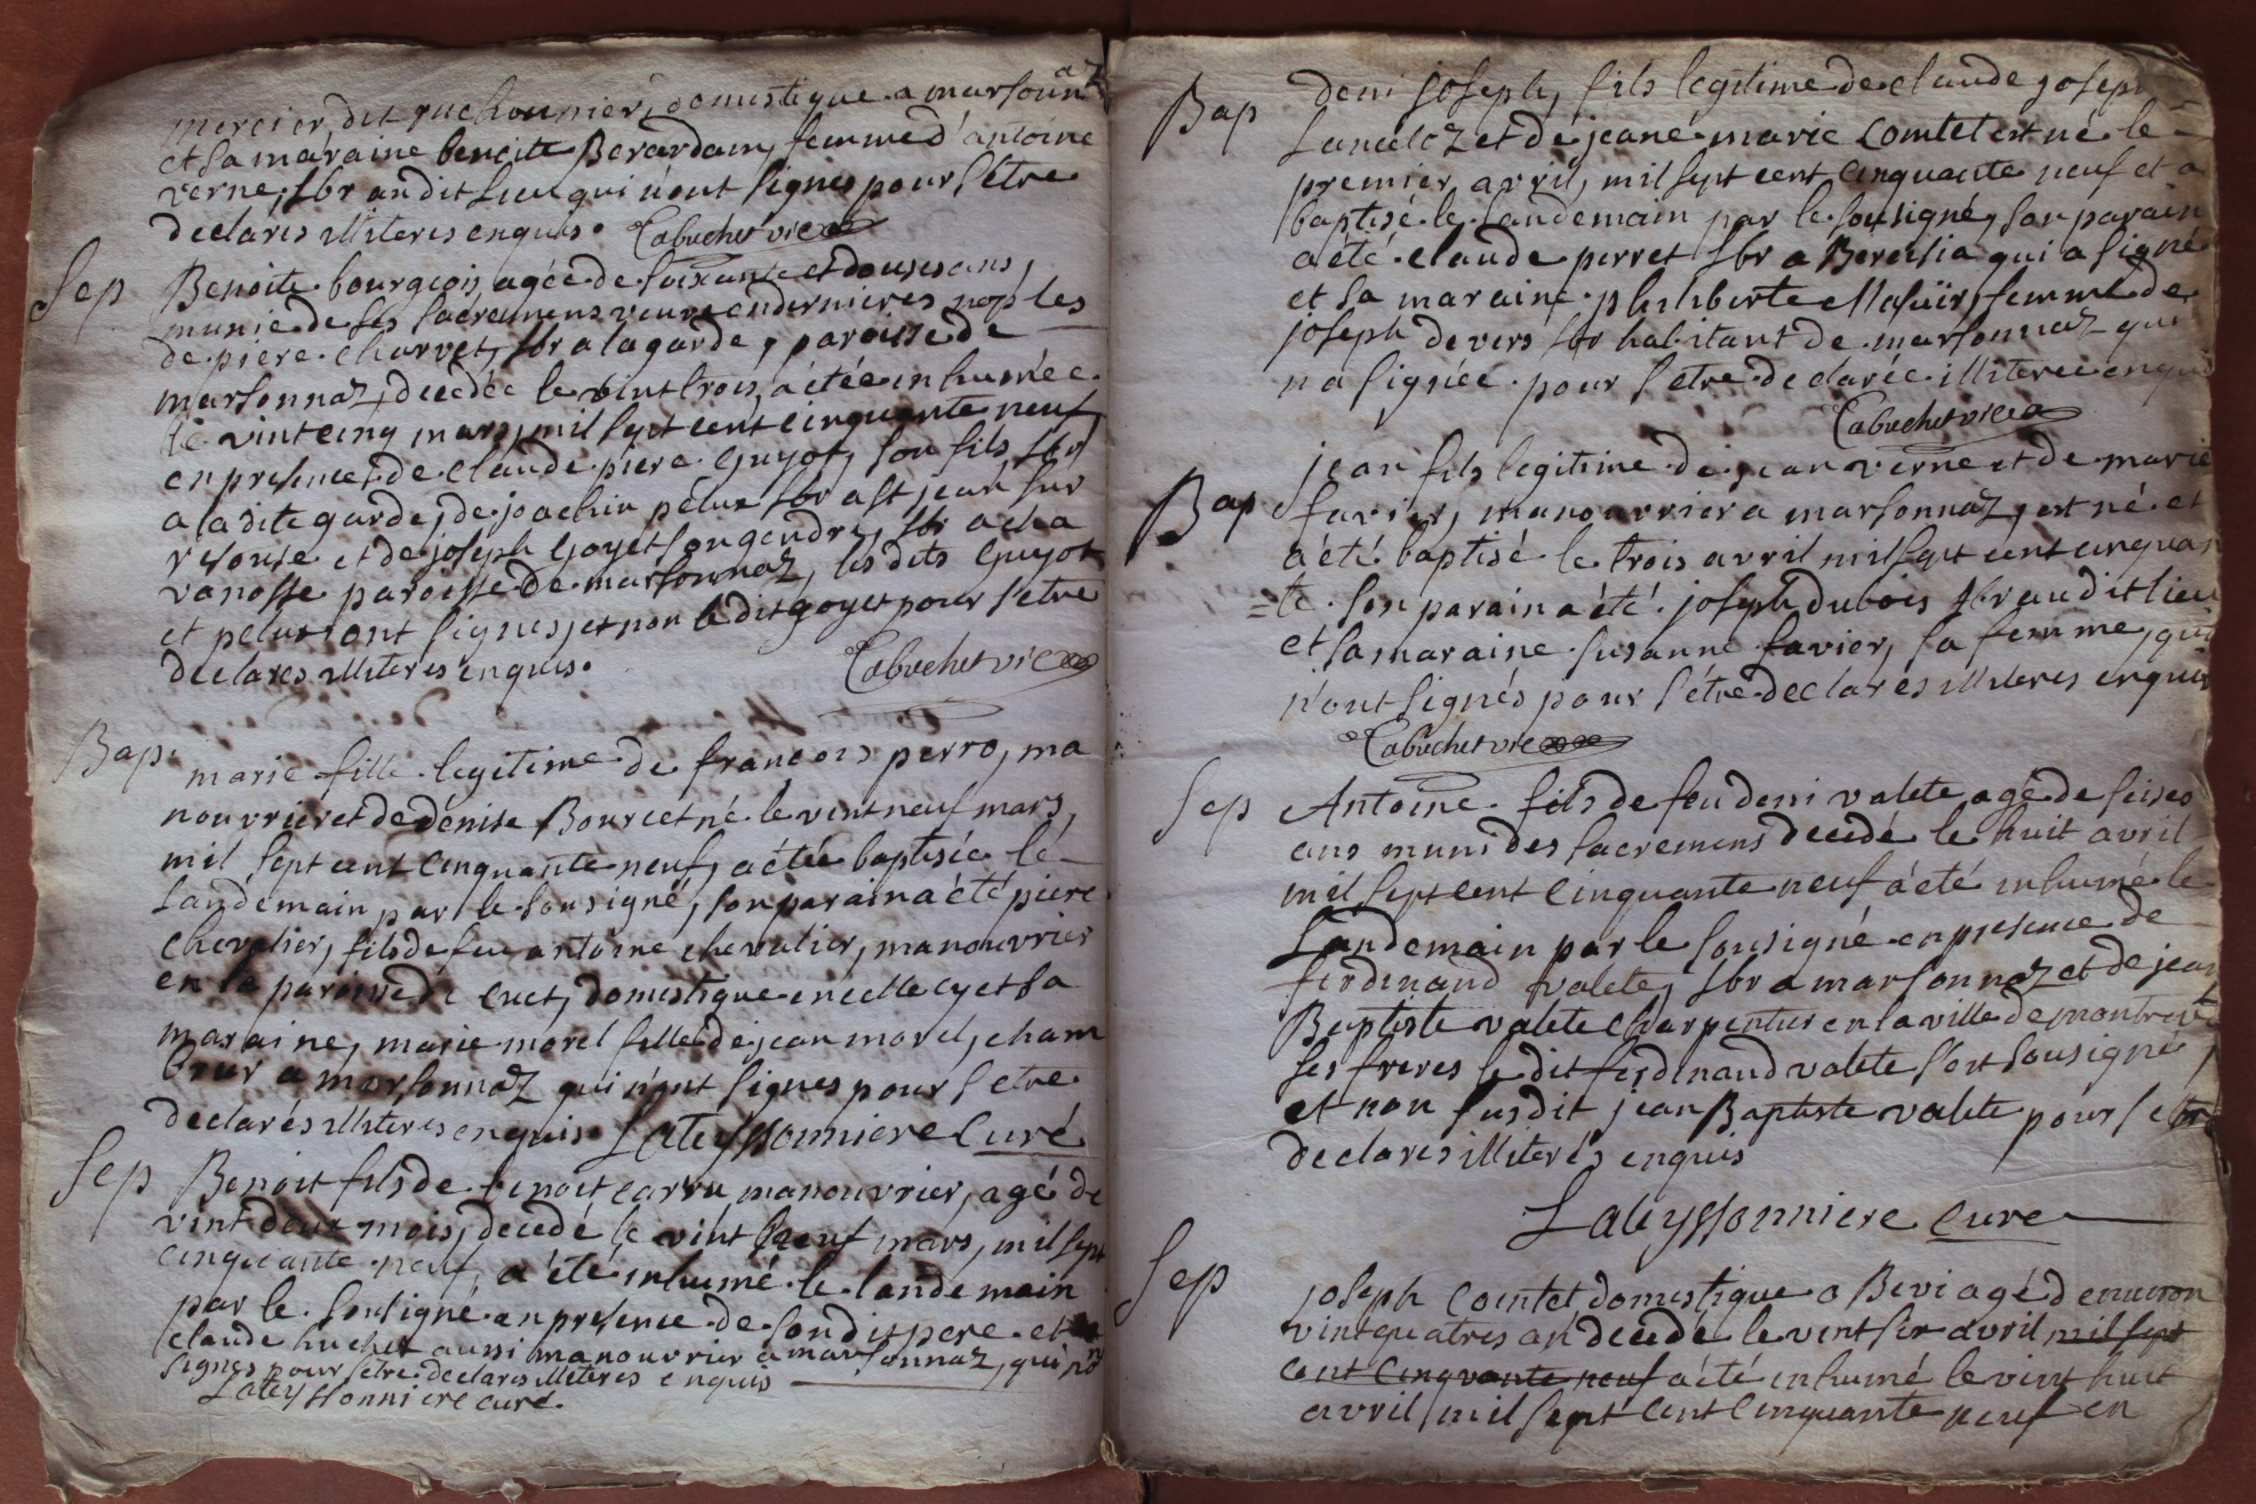 mercier, dit ruchounier, domestique a marsounaz
et sa maraine benoite Berardam, femme d'antoine
verne, lbr audit lieu qui n'ont signés pour s'être
declarés illiterés enquis. Cabuchet vic
Sep
Benoite bourgeois agée de soixante et douse ans,
munie de ses sacremens veuve en dernieres noples
de piere charvet, lbr a la garde, paroisse de
marsonnaz, decedée le vint trois, a étée inhumée
le vint cinq mars, mil sept cent cinquante neuf,
en presence de claude piere Guyot, son fils, lbr
a la dite garde, de joachin pelux lbr a st jean sur
resouse et de joseph Goyet son gendre, lbr a cha
vanosse paroisse de marsonnaz, les dits Guyot
et pelux ont signés, et non le dit goyet pour s'etre
declarés illiterés enquis.
Cabuchet vic
Bap.
marie fille legitime de francois perro, ma
nouvrier et de denise Bourcet né le vint neuf mars,
mil sept cent cinquante neuf, a étée baptisée le
landemain par le sousigné, son parain a été piere
Chevalier, fils de feu antoine chevalier, manouvrier
en la paroisse de cuet, domestique en celle cy et sa
maraine, marie morel fille de jean morel, cham
brier a marsonnaz qui n'ont signés pour s'etre
declarés illiterés enquis. Lateyssonniere Curé
Sep
Benoit fils de benoit carru manouvrier, agé de
vint deux mois, decedé le vint neuf mars, mil sept
cinquante neuf, a été inhumé le landemain
par le sousigné en presence de son dit pere et
claude huchet aussi manouvrier a marsonnaz, qui n'on
signés pour s'etre declarés illiterés enquis
Lateyssonniere curé.
Bap
deni joseph, fils legitime de claude joseph
Lanceloz et de jeane marie Comtet est né le
premier avril, mil sept cent cinquante neuf et a
baptisé le landemain par le sousigné, son parain
a été claude perret lbr a Bereisia qui a signé
et sa maraine philiberte Masuir, femme de
joseph devers lbr habitant de marsonnaz qui
n'a signée pour s'etre declarée illiterée enqui
Cabuchet vic
Bap
jean fils legitime de jean verne et de marie
favier, manouvrier a marsonnaz, est né et
a été baptisé le trois avril mil sept cent cinquan
=te. son parain a été joseph dubois lbr audit lieu
et sa maraine susanne favier, sa femme, qui
n'ont signés pour s'être declarés illiterés enquis
Cabuchet vic
Sep
Antoine fils de feu deni valete agé de seises
ans muni des sacremens decedé le huit avril
mil sept cent cinquante neuf a été inhumé le
Landemain par le sousigné en presence de
ferdinand valete, lbr a marsonnaz et de jean
Baptiste valete charpentier en la ville de montrevel
ses freres le dit ferdinand valete s'est sousigné
et non susdit jean Baptiste valete pour s'etre
declarés illiterés enquis
Lateyssonniere cure
Sep
joseph Comtet domestique a Bevi agé d'environ
vint quatres an decedé le vint six avril mil sept
cent cinquante neuf a été inhumé le vint huit
avril mil sept cent cinquante neuf en